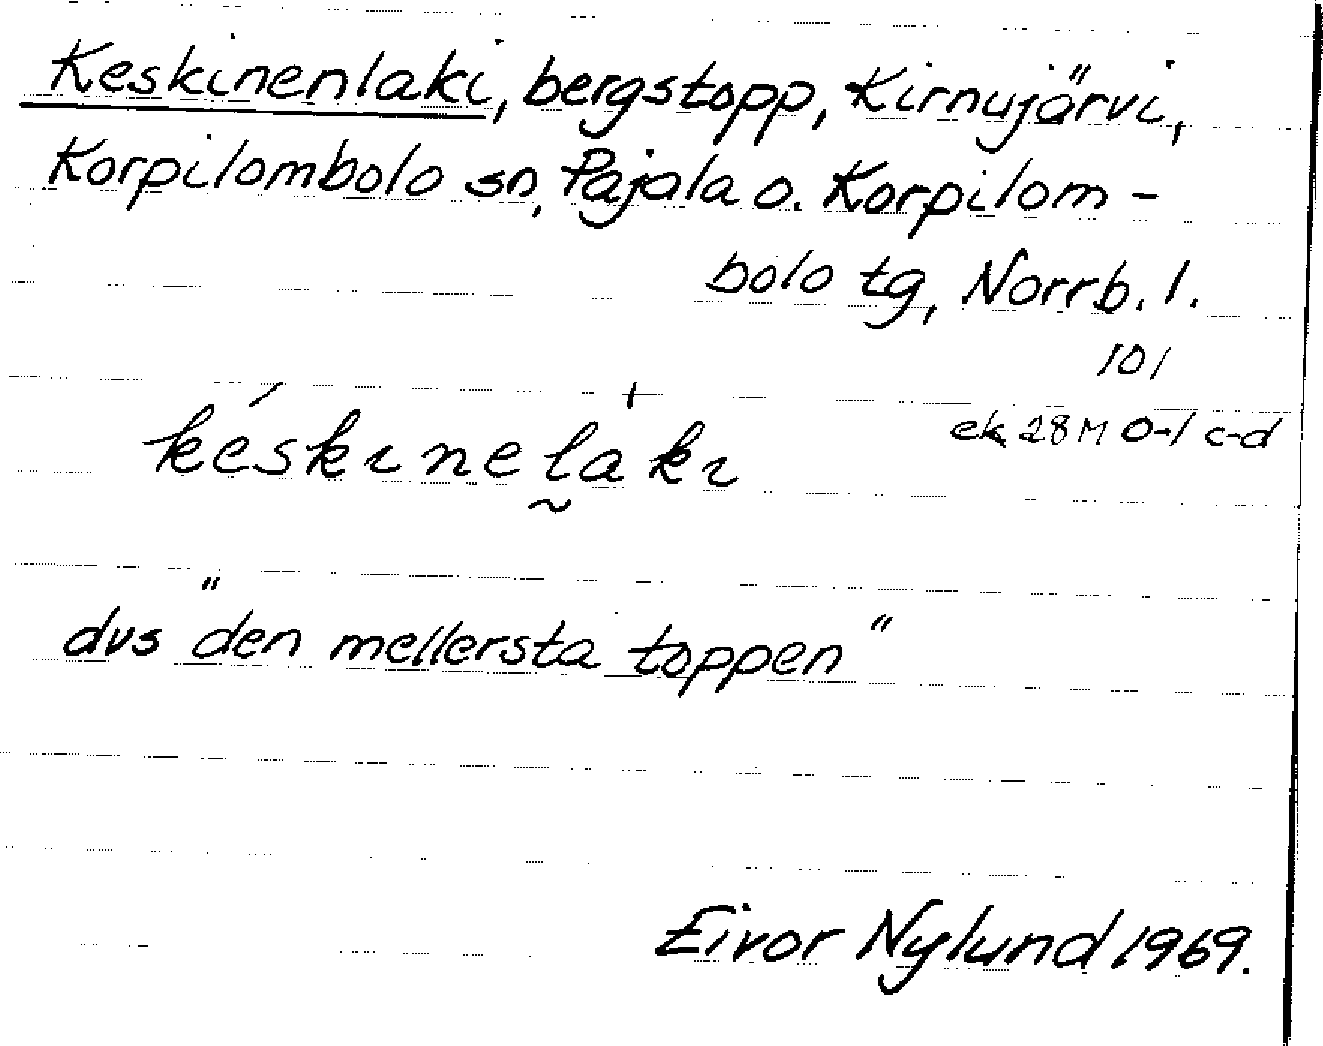 Keskinenlaki, bergstopp, Kirnujärvi,
Korpilombolo sn, Pajala o. Korpilom-
bolo tg, Norrb. l.
101
ek 28 M 0-1 c-d
késkɪnela̰kɪ
dvs "den mellersta toppen"
Eivor Nylund 1969.